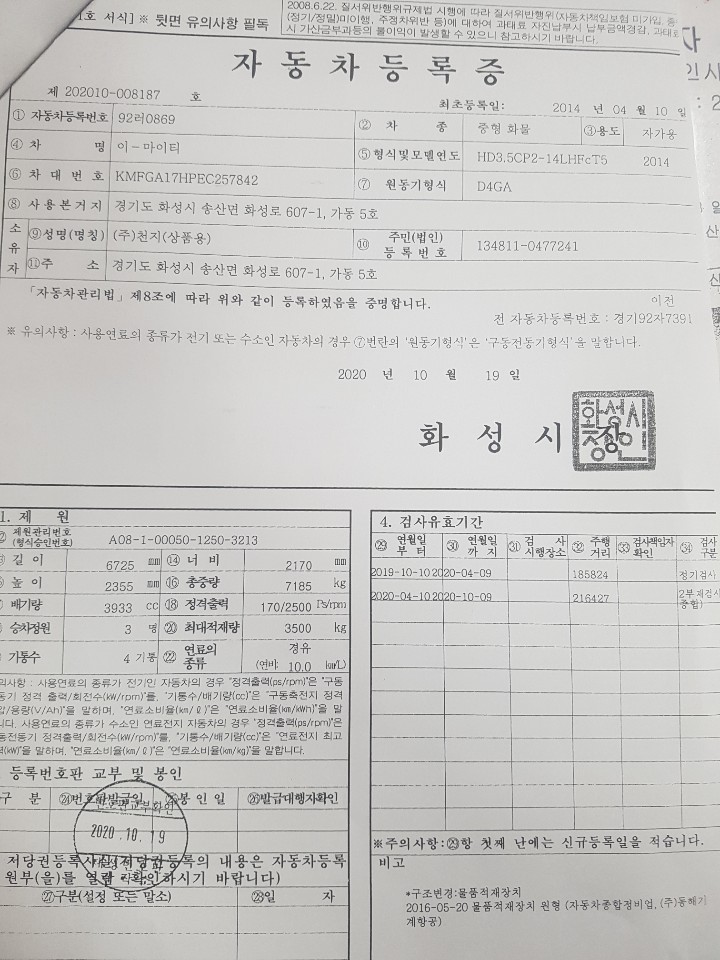 1호 서식] ※ 뒷면 유의사항 필독
2008.6.22. 질서위반행위규제법 시행에 따라 질서위반행위(자동차책임보험 미가입,
(정기/정밀)미이행, 주정차위반 등)에 대하여 과태료 자진납부시 납부금액경감, 과태료
시 가산금부과등의 불이익이 발생할 수 있으니 참고하시기 바랍니다.
자동차등록증
제 202010-008187 호
최초등록일: 2014 년 04 월 10 일
① 자동차등록번호 92러0869 ② 차 종 중형 화물 ③용도 자가용
④ 차 명 이-마이티 ⑤형식및모델연도 HD3.5CP2-14LHFcT5 2014
⑥ 차 대 번 호 KMFGA17HPEC257842 ⑦ 원동기형식 D4GA
⑧ 사 용 본 거 지 경기도 화성시 송산면 화성로 607-1, 가동 5호
소유자 ⑨성명(명칭) (주)천지(상품용) ⑩ 주민(법인)등록번호 134811-0477241
⑪주 소 경기도 화성시 송산면 화성로 607-1, 가동 5호
「자동차관리법」제8조에 따라 위와 같이 등록하였음을 증명합니다.
이전
전 자동차등록번호 : 경기92자7391
※ 유의사항 : 사용연료의 종류가 전기 또는 수소인 자동차의 경우 ⑦번란의 '원동기형식'은 '구동전동기형식'을 말합니다.
2020 년 10 월 19 일
화 성 시 장
화성시장인
1. 제 원
제원관리번호(형식승인번호) A08-1-00050-1250-3213
길 이 6725 mm ⑭ 너 비 2170 mm
높 이 2355 mm ⑯ 총중량 7185 kg
배기량 3933 cc ⑱ 정격출력 170/2500 Ps/rpm
승차정원 3 명 ⑳ 최대적재량 3500 kg
기통수 4 기통 ㉒ 연료의 종류 경유 (연비: 10.0 km/L)
의사항 : 사용연료의 종류가 전기인 자동차의 경우 "정격출력(ps/rpm)"은 "구동
동기 정격 출력/회전수(kW/rpm)"를, "기통수/배기량(cc)"은 "구동축전지 정격
압/용량(V/Ah)"를 말하며, "연료소비율(km/ℓ)"은 "연료소비율(km/kWh)"을 말
니다. 사용연료의 종류가 수소인 연료전지 자동차의 경우 "정격출력(ps/rpm)"은
동전동기 정격출력/회전수(kW/rpm)"를, "기통수/배기량(cc)"은 "연료전지 최고
력(kW)"을 말하며, "연료소비율(km/ℓ)"은 "연료소비율(km/kg)"을 말합니다.
등록번호판 교부 및 봉인
구 분 ㉔번호판발급일 ㉕봉 인 일 ㉖발급대행자확인
2020. 10. 19
저당권등록사실(저당권등록의 내용은 자동차등록
원부(을)를 열람·확인하시기 바랍니다)
㉗구분(설정 또는 말소) ㉘일 자
4. 검사유효기간
㉙ 연월일부터 ㉚ 연월일까지 ㉛ 검사시행장소 ㉜ 주행거리 ㉝ 검사책임자확인 ㉞ 검사구분
2019-10-10 2020-04-09 185824 정기검사
2020-04-10 2020-10-09 216427 2부재검사종합)
※주의사항:㉙항 첫째 난에는 신규등록일을 적습니다.
비고
*구조변경:물품적재장치
2016-05-20 물품적재장치 원형 (자동차종합정비업, (주)동해기
계항공)